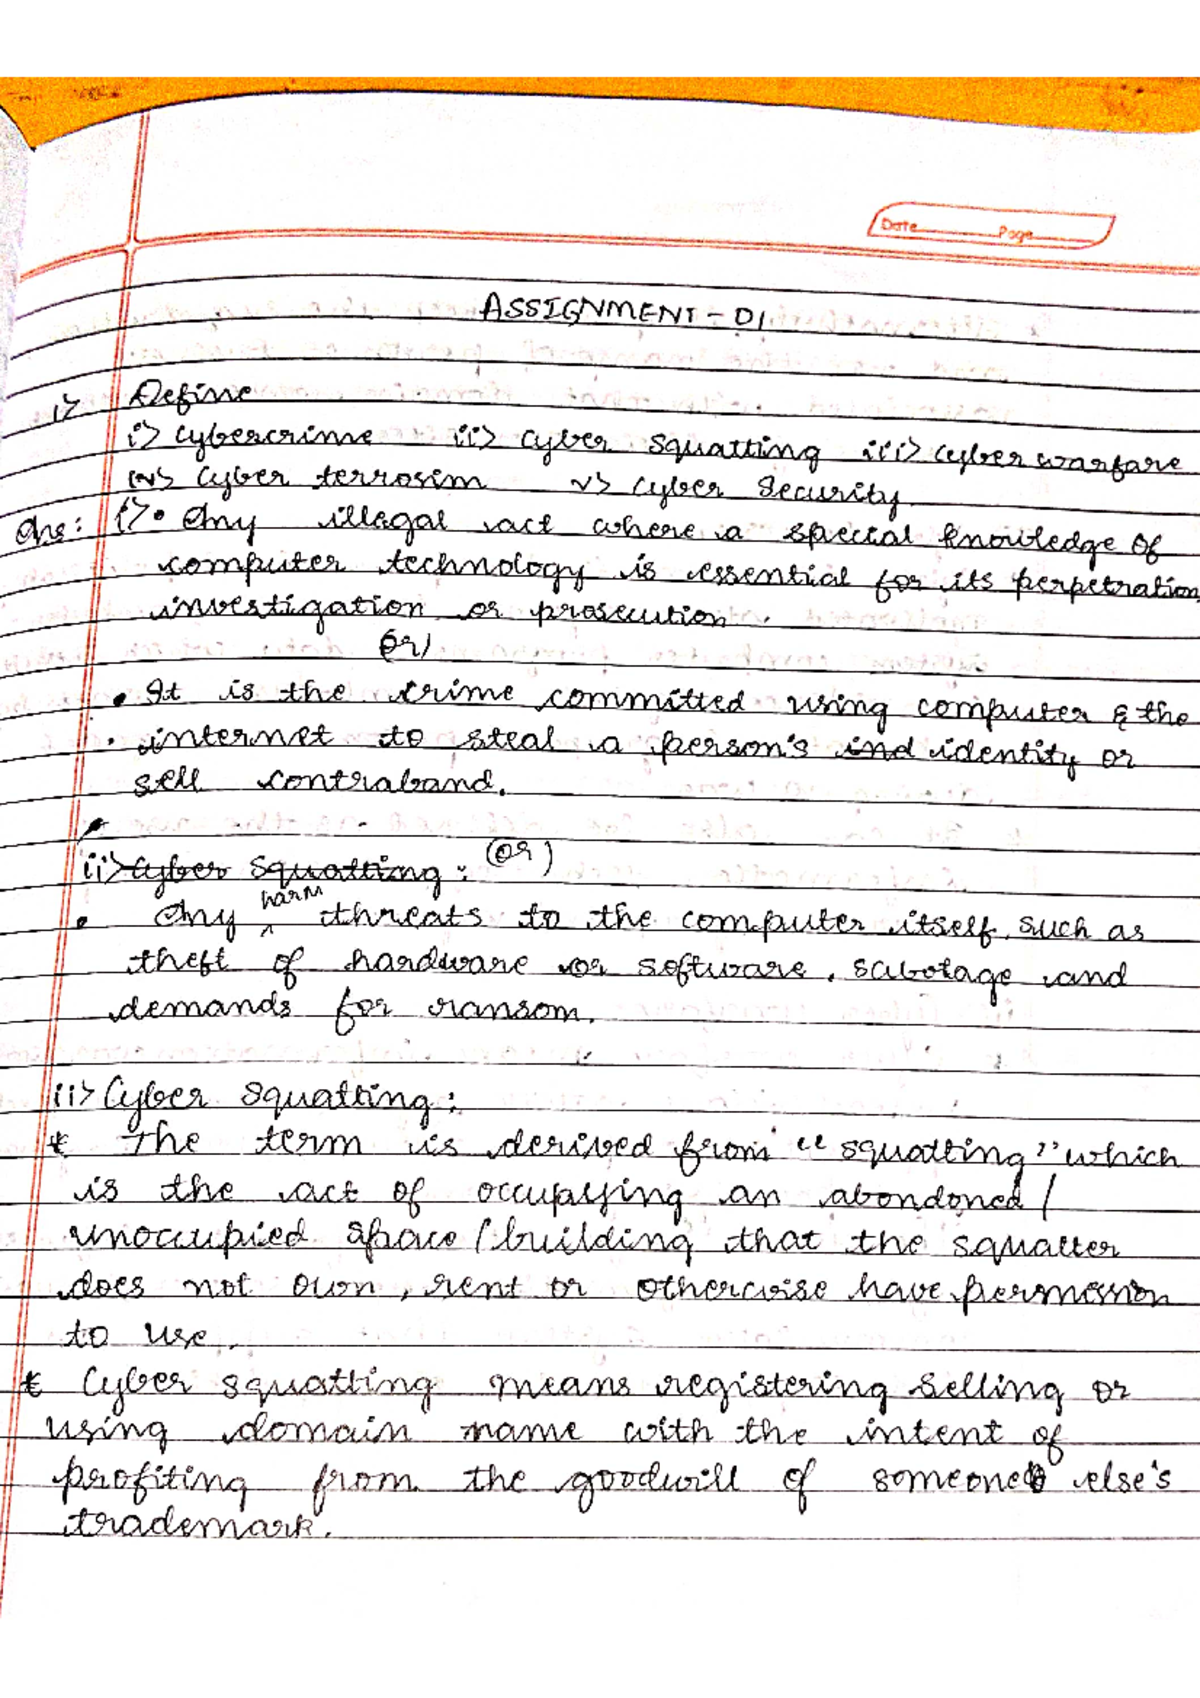 Date Page
ASSIGNMENT - 01
1> Define
i> Cybercrime ii> Cyber Squatting iii> Cyber warfare
iv> Cyber terrosim v> Cyber Security
Ans: i> • Any illegal act where a special knowledge of
computer technology is essential for its perpetration
investigation or prosecution.
Or/
• It is the crime committed using computer & the
internet to steal a person's ind identity or
sell contraband.
ii> Cyber Squatting : (or)
• Any harm threats to the computer itself, such as
theft of hardware or software, sabotage and
demands for ransom.
ii> Cyber Squatting :
* The term is derived from "squatting" which
is the act of occupying an abondoned /
unoccupied space / building that the squatter
does not own, rent or otherwise have permession
to use.
* Cyber squatting means registering selling or
using domain name with the intent of
profiting from the goodwill of someone else's
trademark.